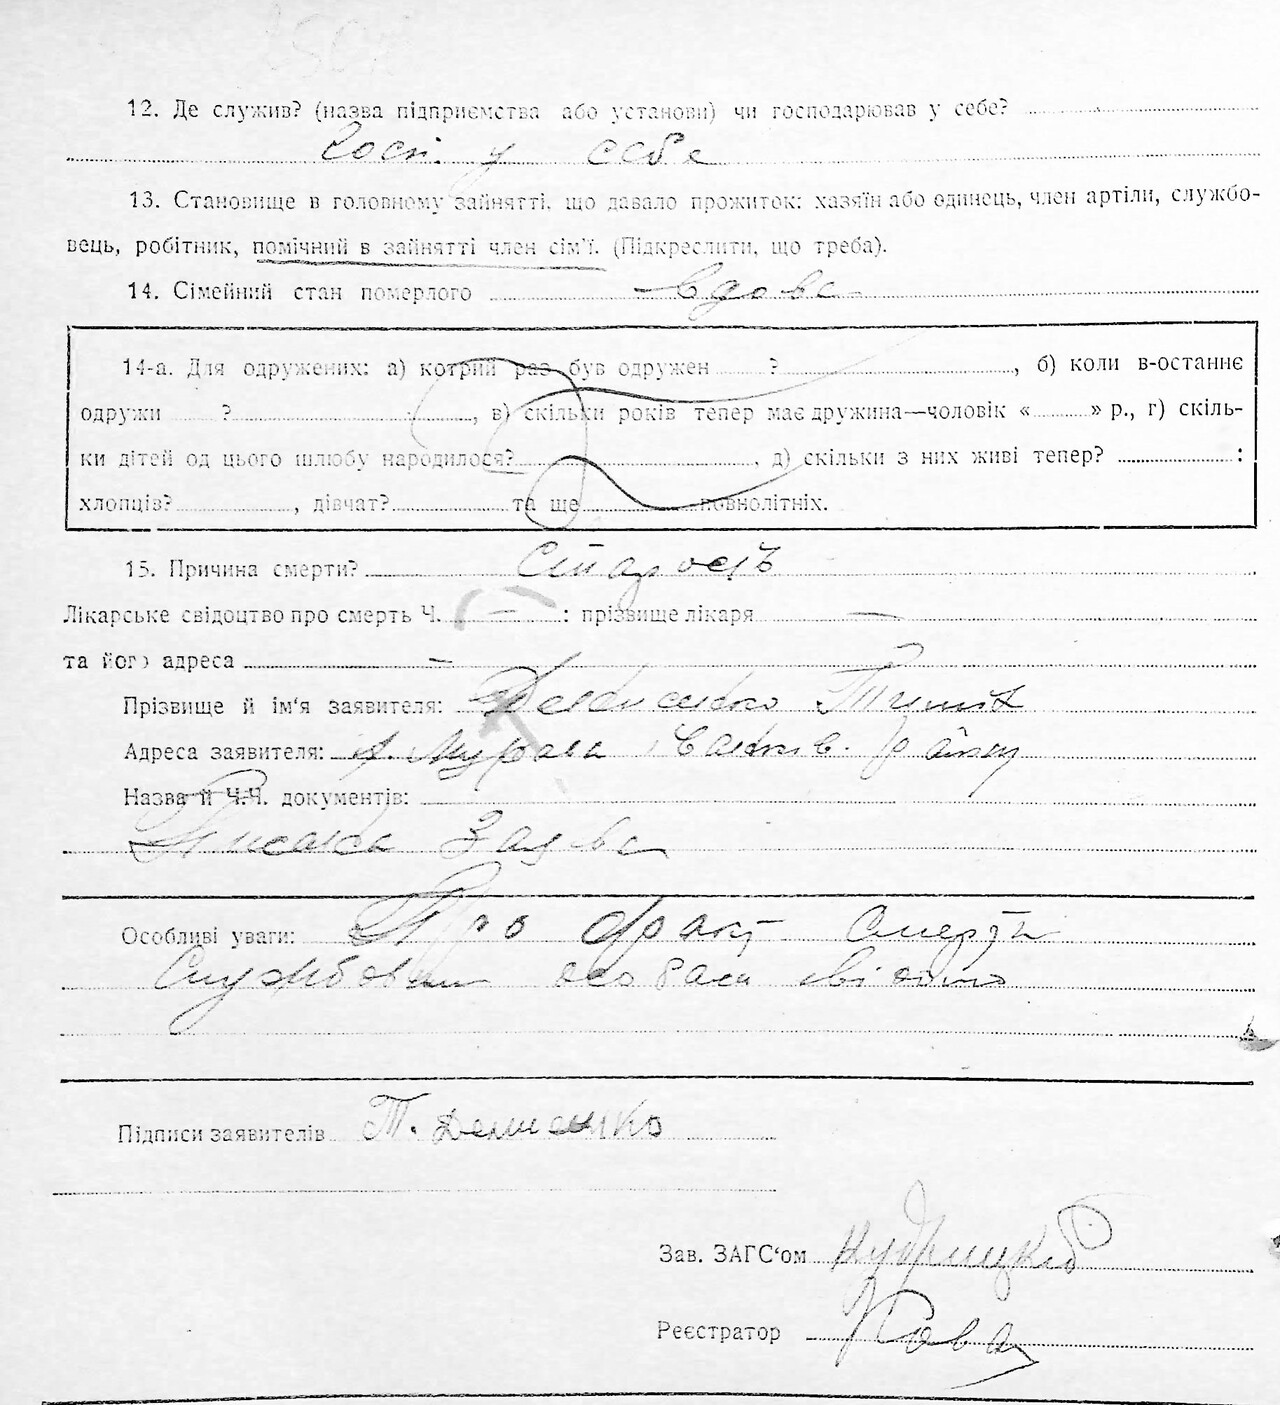 12. Де служив? (назва підприємства або установи) чи господарював у себе?
Госп. у себе
13. Становище в головному зайнятті, що давало прожиток: хазяїн або одинець, член артіли, службо-
вець, робітник, помічний в зайнятті член сім'ї. (Підкреслити, що треба).
14. Сімейний стан померлого вдова
14-а. Для одружених: а) котрий раз був одружен ?, б) коли в-останнє
одружи ?, в) скільки років тепер має дружина—чоловік « » р., г) скіль-
ки дітей од цього шлюбу народилося?, д) скільки з них живі тепер? :
хлопців?, дівчат? та ще повнолітніх.
15. Причина смерти? Старость
Лікарське свідоцтво про смерть Ч. — : прізвище лікаря —
та його адреса —
Прізвище й ім'я заявителя: Денисенко
Адреса заявителя: Мурава району
Назва й Ч.Ч. документів:
Писана Заява
Особливі уваги: Про факт смерти
Службовим особам відомо
Підписи заявителів Т. Денисенко
Зав. ЗАГС'ом Кудрицкий
Реєстратор